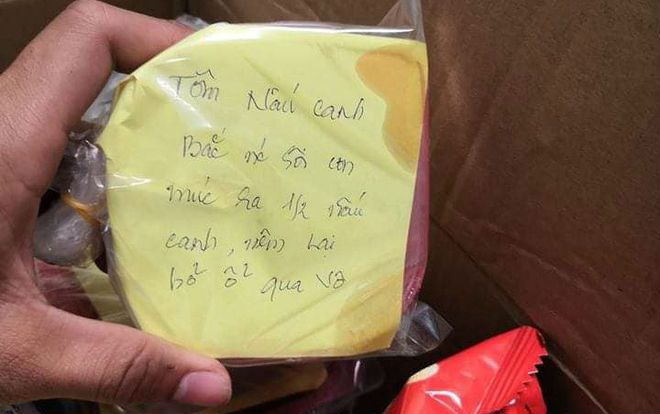 Tôm Nấu canh
Bắc nc sôi
múc ra 1/2 nấu
canh, nêm lại
bỏ ổ qua vô